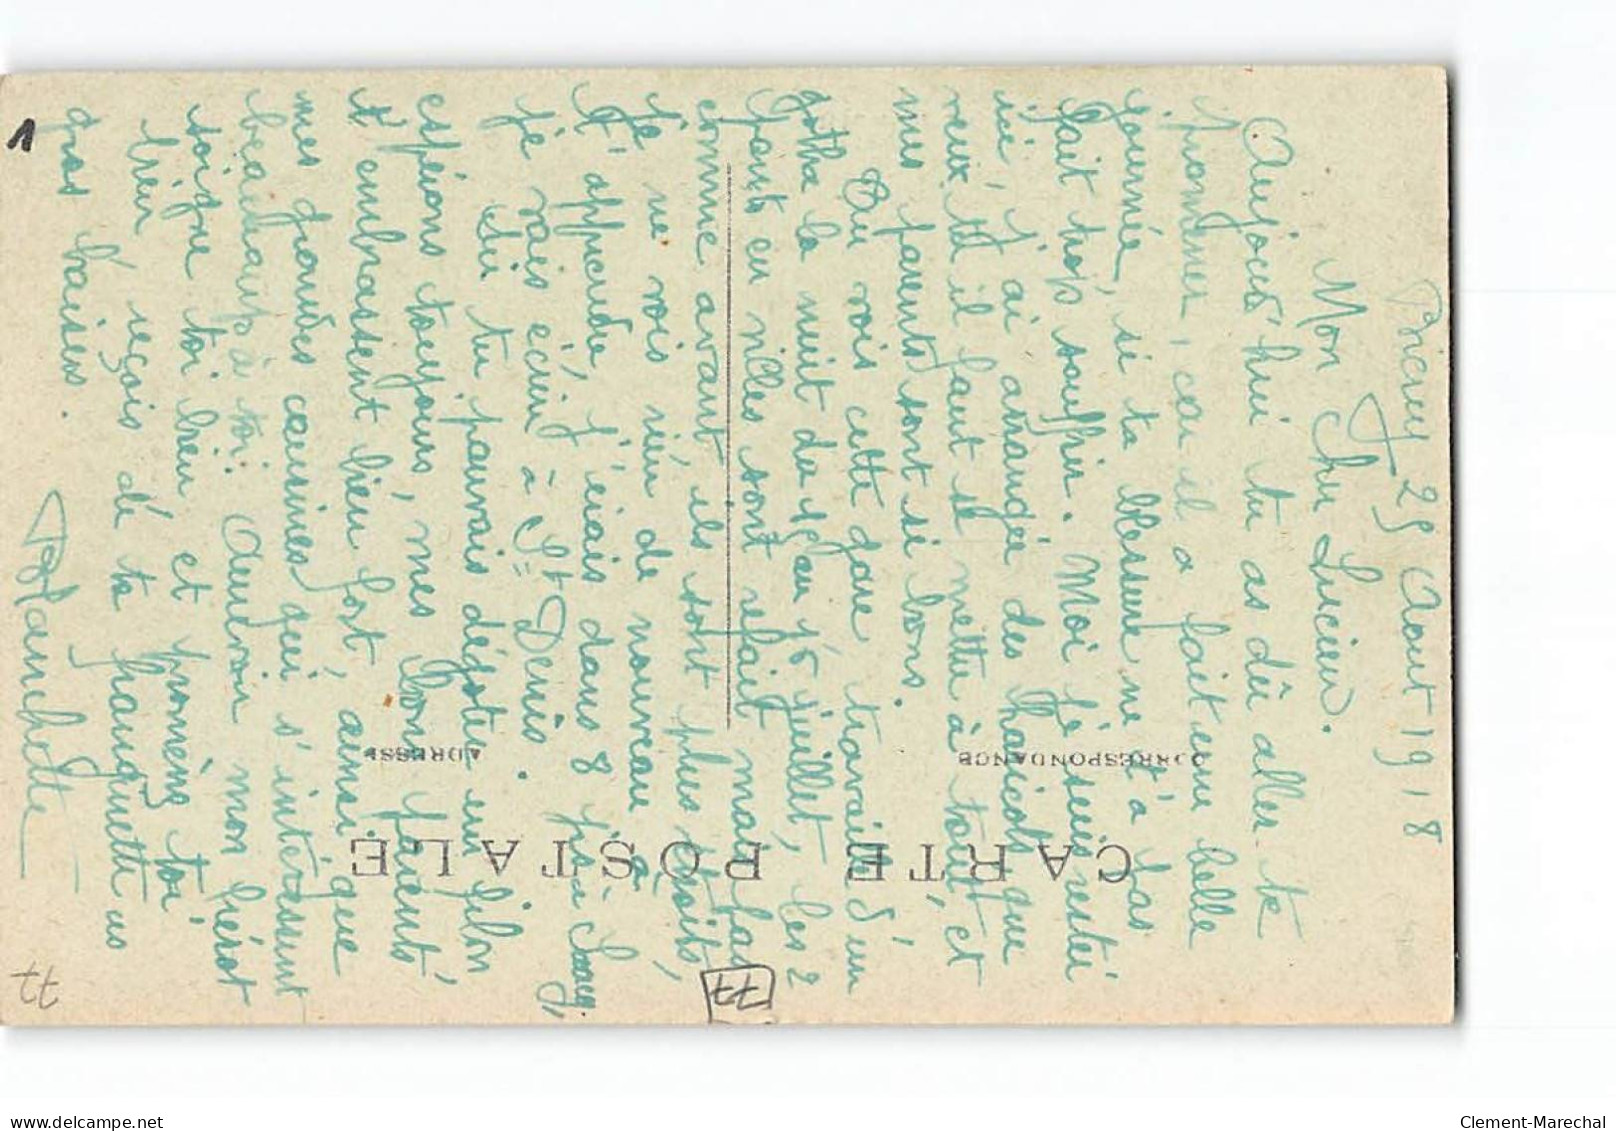 Bicey 25 Aout 1918
Mon Cher Lucien.
Aujourd'hui tu as dû aller te
promener, car il a fait une belle
journée, si ta blessure ne t'a pas
fait trop souffrir. Moi je suis resté
ici, j'ai arrangée des haricots que
veux tu il faut se mettre à tout et
mes parents sont si bons.
Tu vois cette gare travaille d'un
gotha la nuit du 15 au 16 juillet, les 2
ponts en villes sont refait mais pas
comme avant, ils sont plus étroits,
je ne vois rien de nouveau à
t'apprendre, j'irais dans 8 j. à
je vais écrire à St Denis.
Si tu pouvais dégoter un filon
espérons toujours, mes bons parents
t'embrassent bien fort, ainsi que
mes grandes cousines qui s'intéressent
beaucoup à toi. Aurevoir mon Pierrot
soigne toi bien et promène toi
bien, reçois de ta franquette us
gros baisers.
Blanchette
CARTE POSTALE
CORRESPONDANCE
ADRESSE
1
77
77
delcampe.net
Clement-Marechal